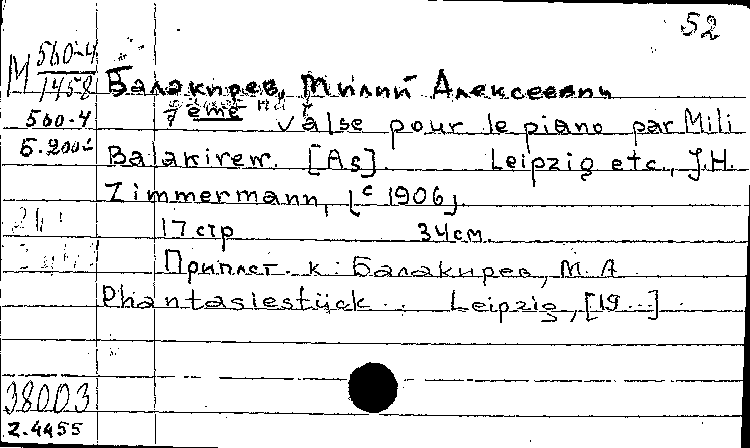 52
М 560-4
1458
Балакирев, Милий Алексеевич
560-4
7 ème Valse pour le piano par Mili
Balakirew. [As]. Leipzig etc., J.H.
Zimmermann, [c 1906].
17 стр 34 см.
Приплет. к: Балакирев, М. А
Phantasiestück.. Leipzig, [19...]
38003
2.4455